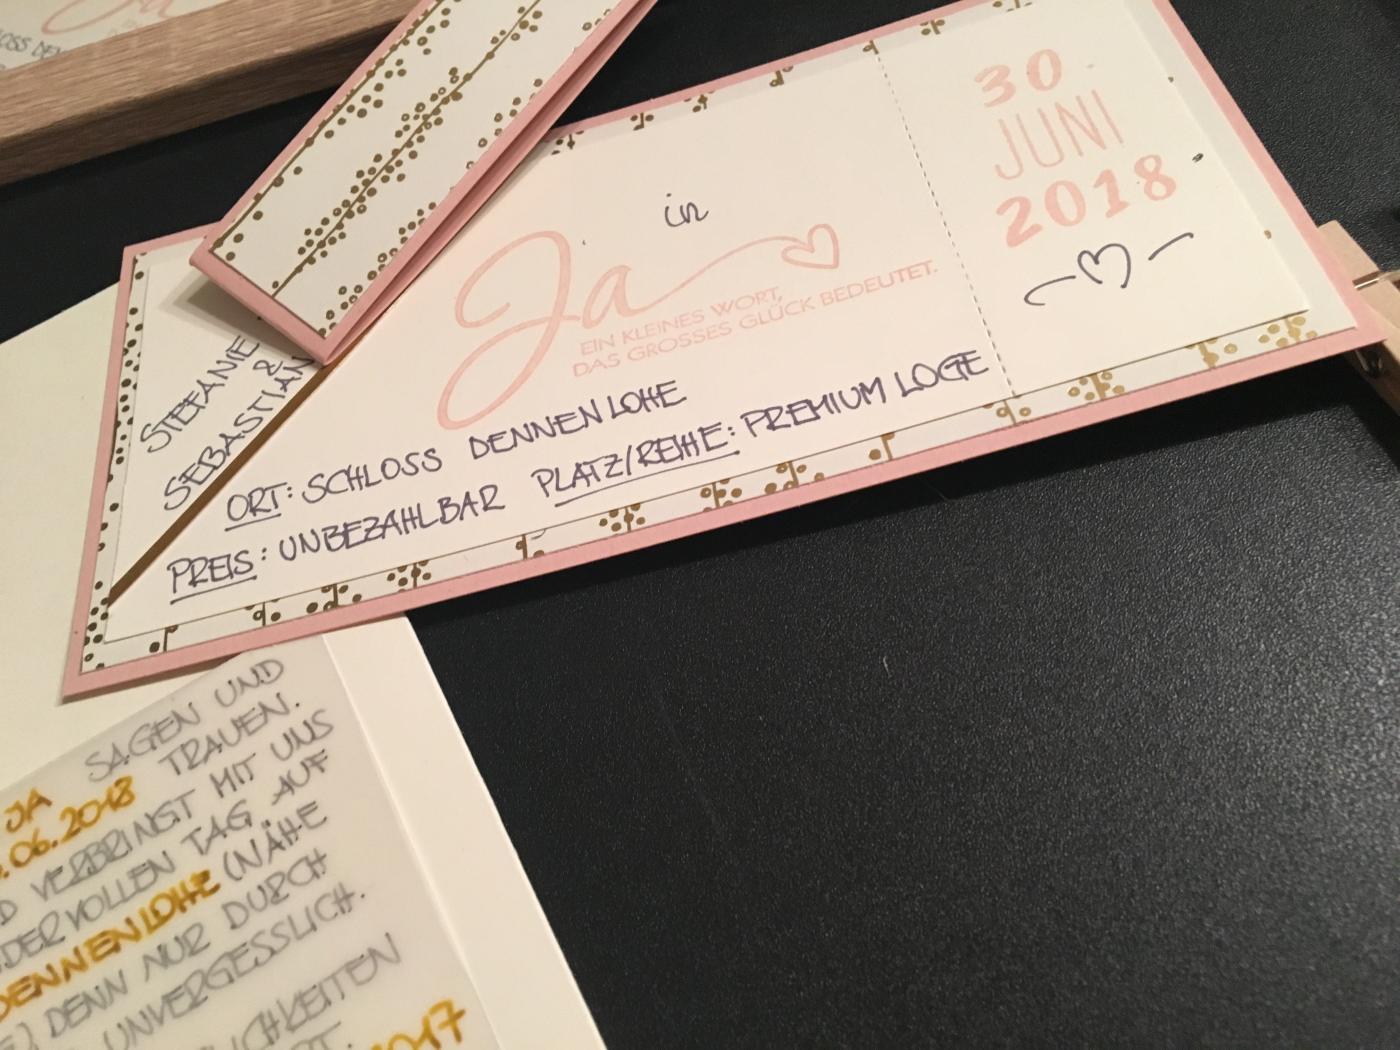 LOSS DEN
STEFANIE
&
SEBASTIAN
in
Ja
EIN KLEINES WORT,
DAS GROSSES GLÜCK BEDEUTET.
ORT: SCHLOSS DENNENLOHE
PREIS: UNBEZAHLBAR PLATZ/REIHE: PREMIUM LOGE
30
JUNI
2018
SAGEN UND
JA TRAUEN.
.06.2018
VERBRINGST MIT UNS
DERVOLLEN TAG AUF
DENNENLOHE (NÄHE
DENN NUR DURCH
UNVERGESSLICH.
LICHKEITEN
2017